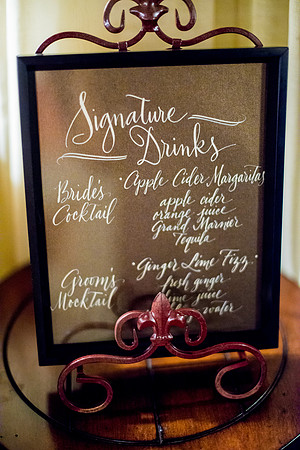 Signature
Drinks
Bride's
Cocktail
• Apple Cider Margaritas
apple cider
orange juice
Grand Marnier
Tequila
Groom's
Mocktail
• Ginger Lime Fizz •
fresh ginger
juice
water